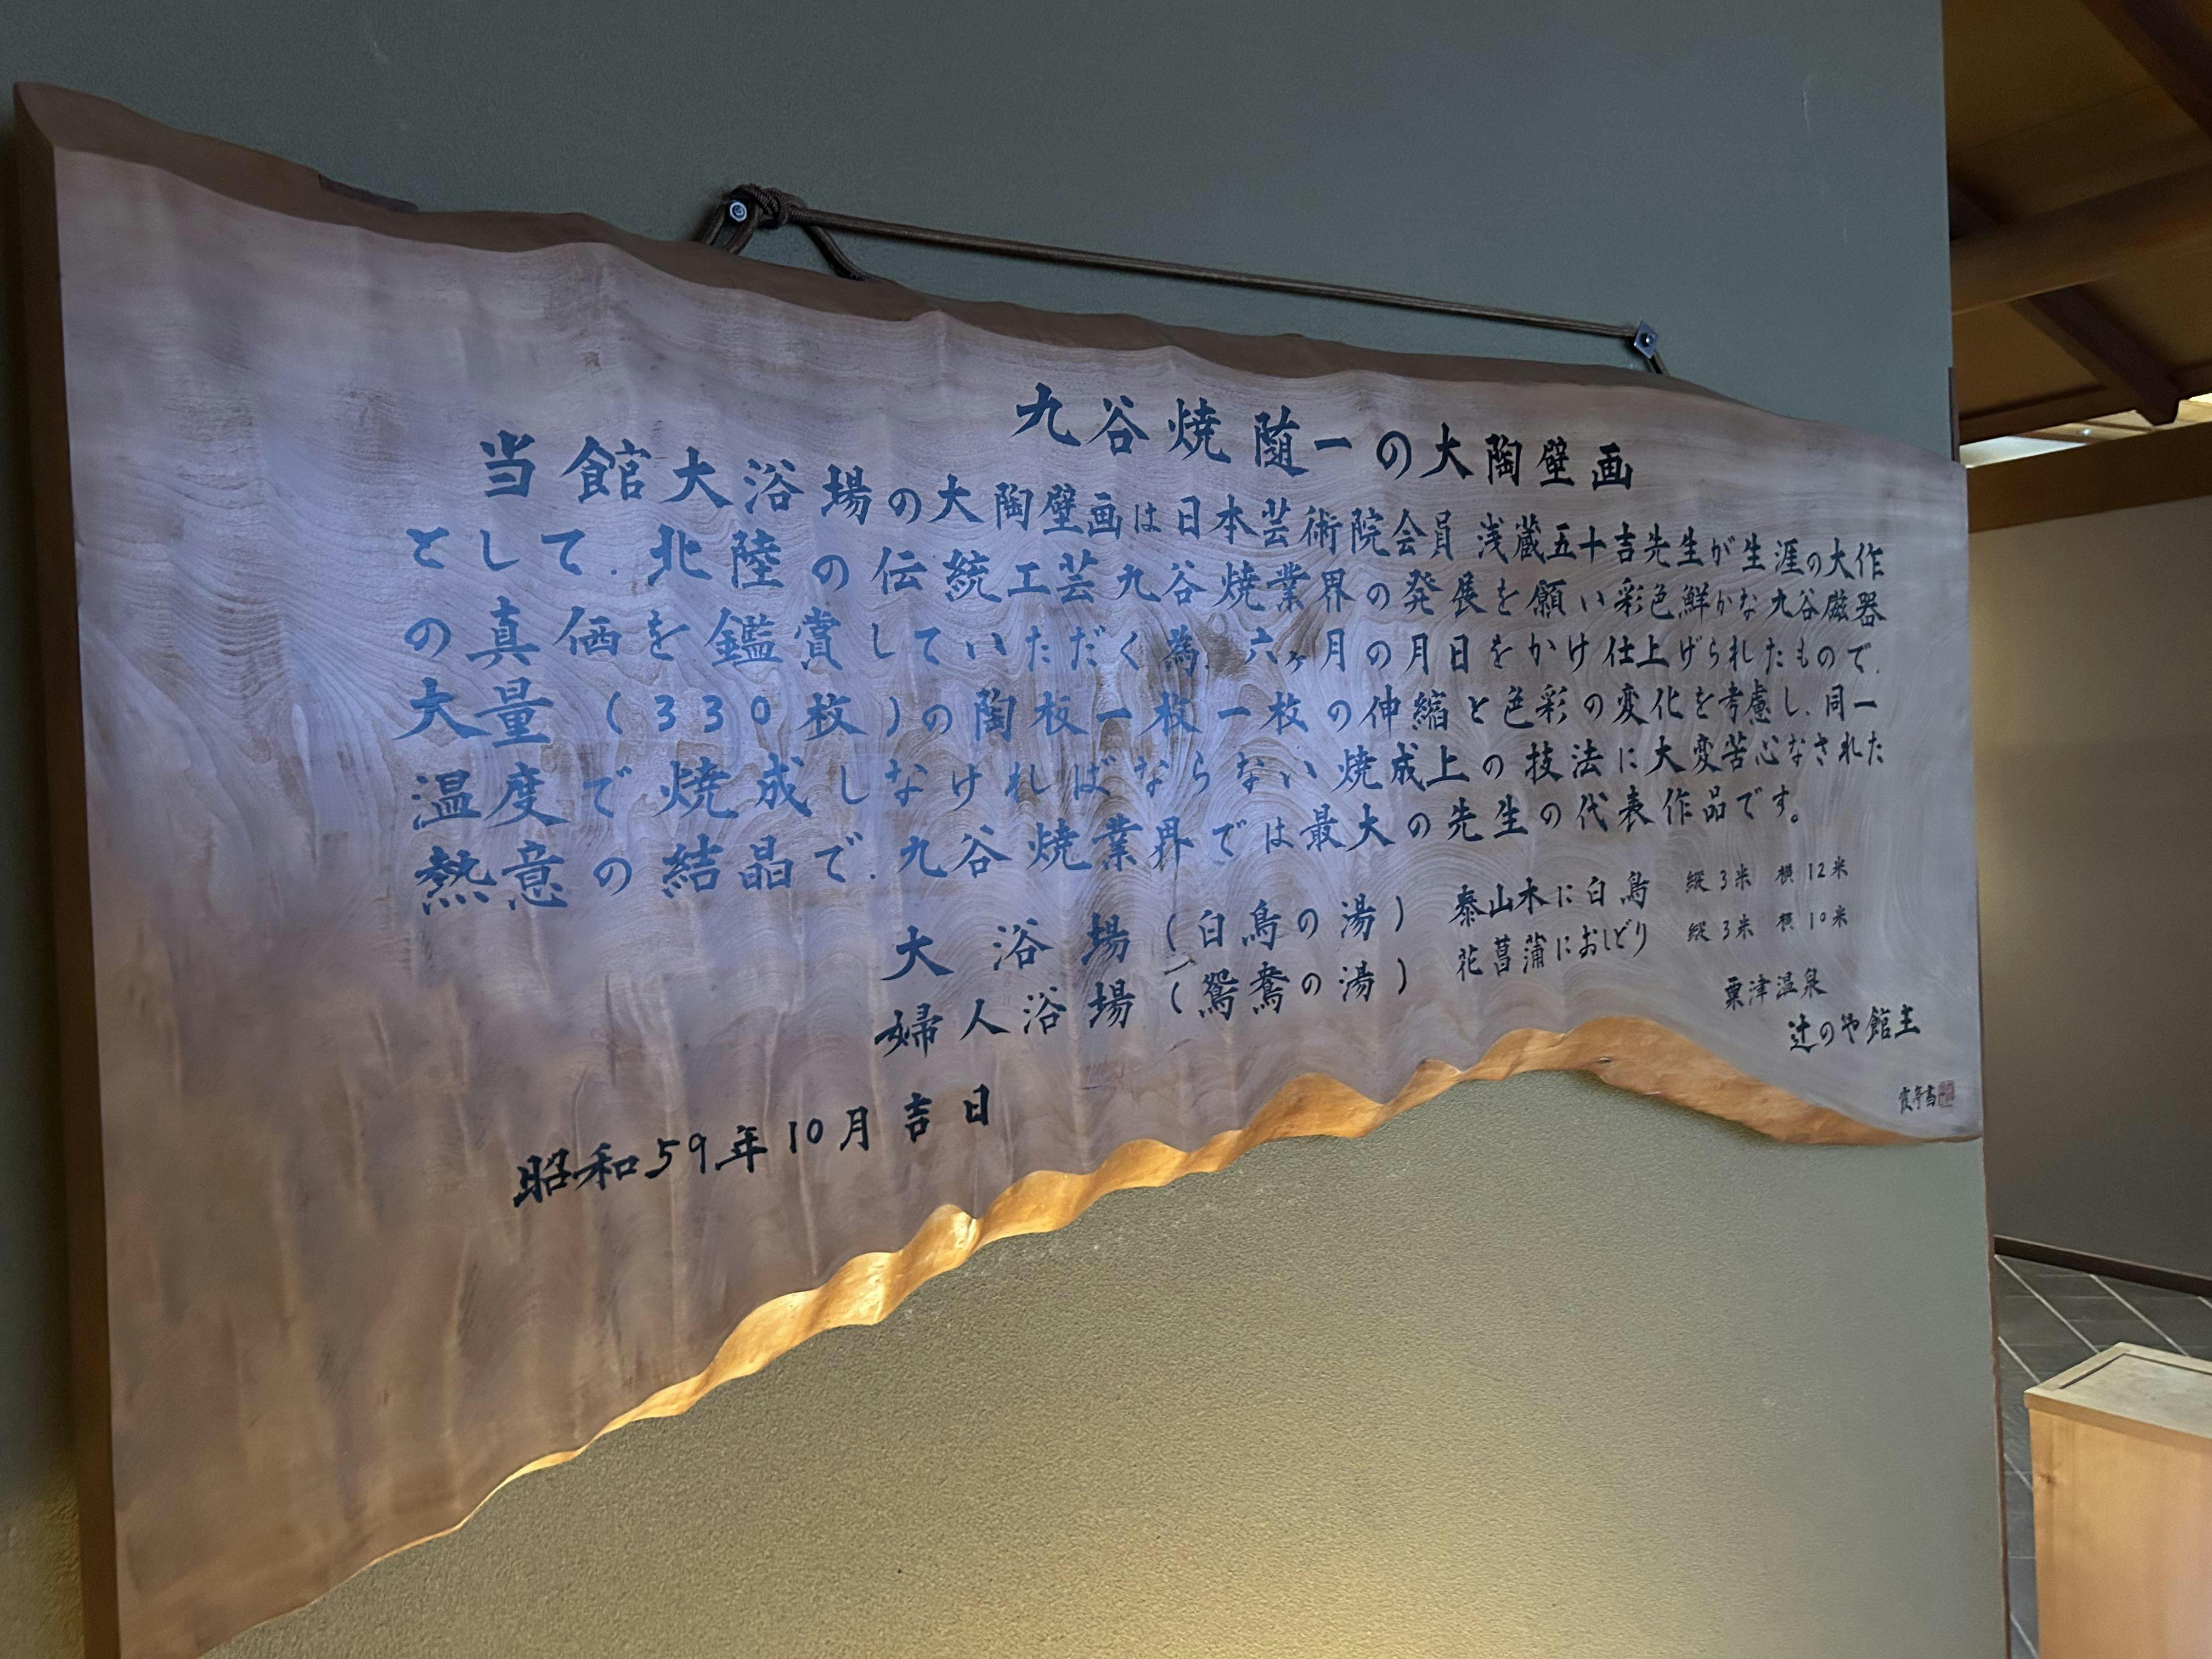 九谷焼随一の大陶壁画
当館大浴場の大陶壁画は日本芸術院会員 浅蔵五十吉先生が生涯の大作
として、北陸の伝統工芸九谷焼業界の発展を願い彩色鮮かな九谷磁器
の真価を鑑賞していただく為、六ヶ月の月日をかけ仕上げられたもので、
大量(330枚)の陶板一枚一枚の伸縮と色彩の変化を考慮し、同一
温度で焼成しなければならない焼成上の技法に大変苦心なされた
熱意の結晶で、九谷焼業界では最大の先生の代表作品です。
大浴場(白鳥の湯) 泰山木に白鳥 縦3米 横12米
婦人浴場(鴛鴦の湯) 花菖蒲におしどり 縦3米 横10米
粟津温泉
辻のや館主
昭和59年10月吉日